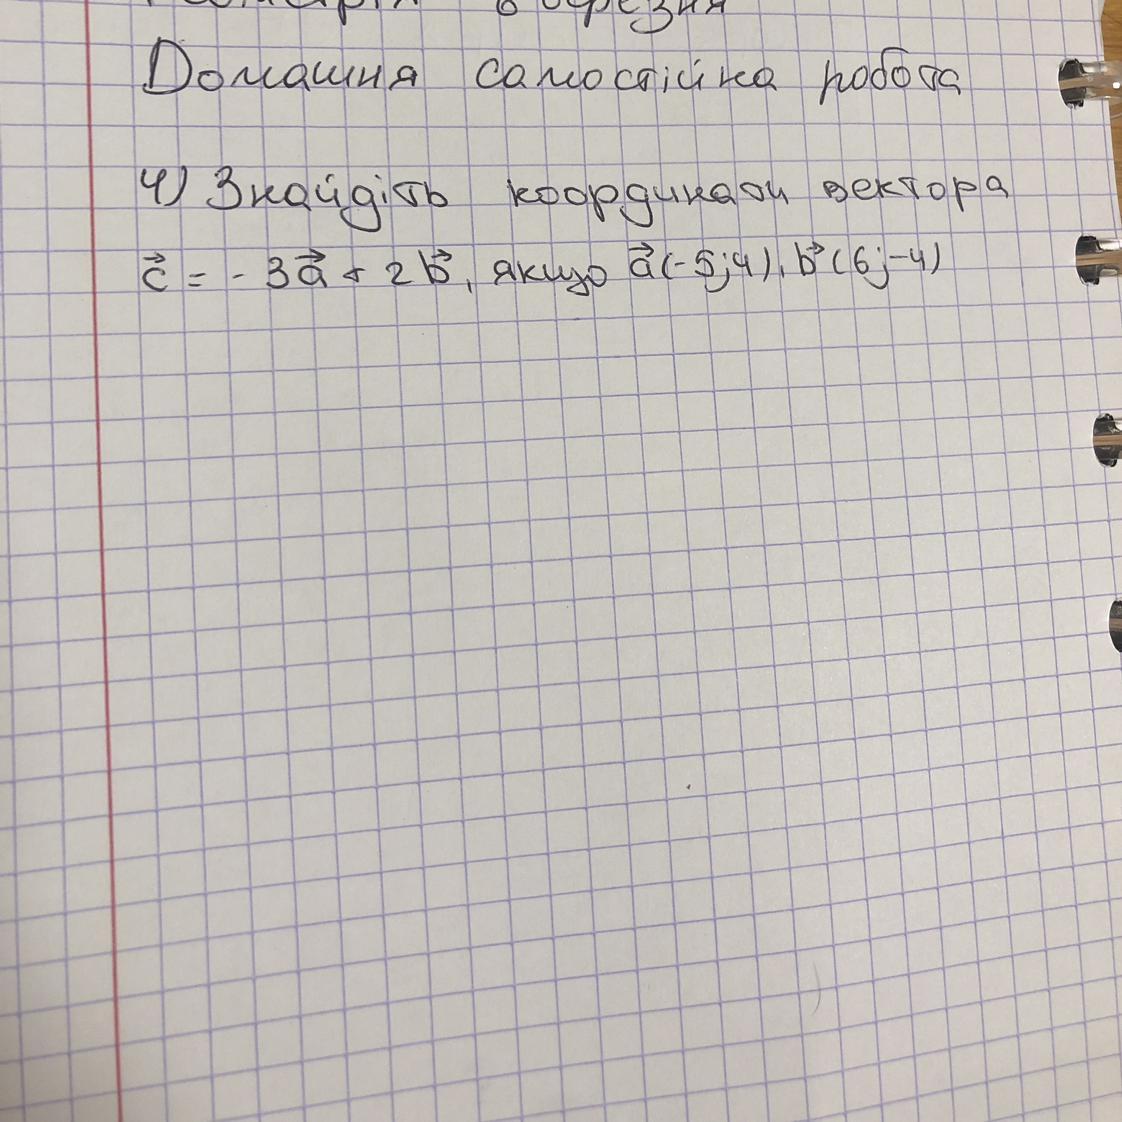 Геометрія 6 березня
Домашня самостійна робота
4) Знайдіть координати вектора
c⃗ = - 3a⃗ + 2b⃗, якщо a⃗(-5;4), b⃗(6;-4)